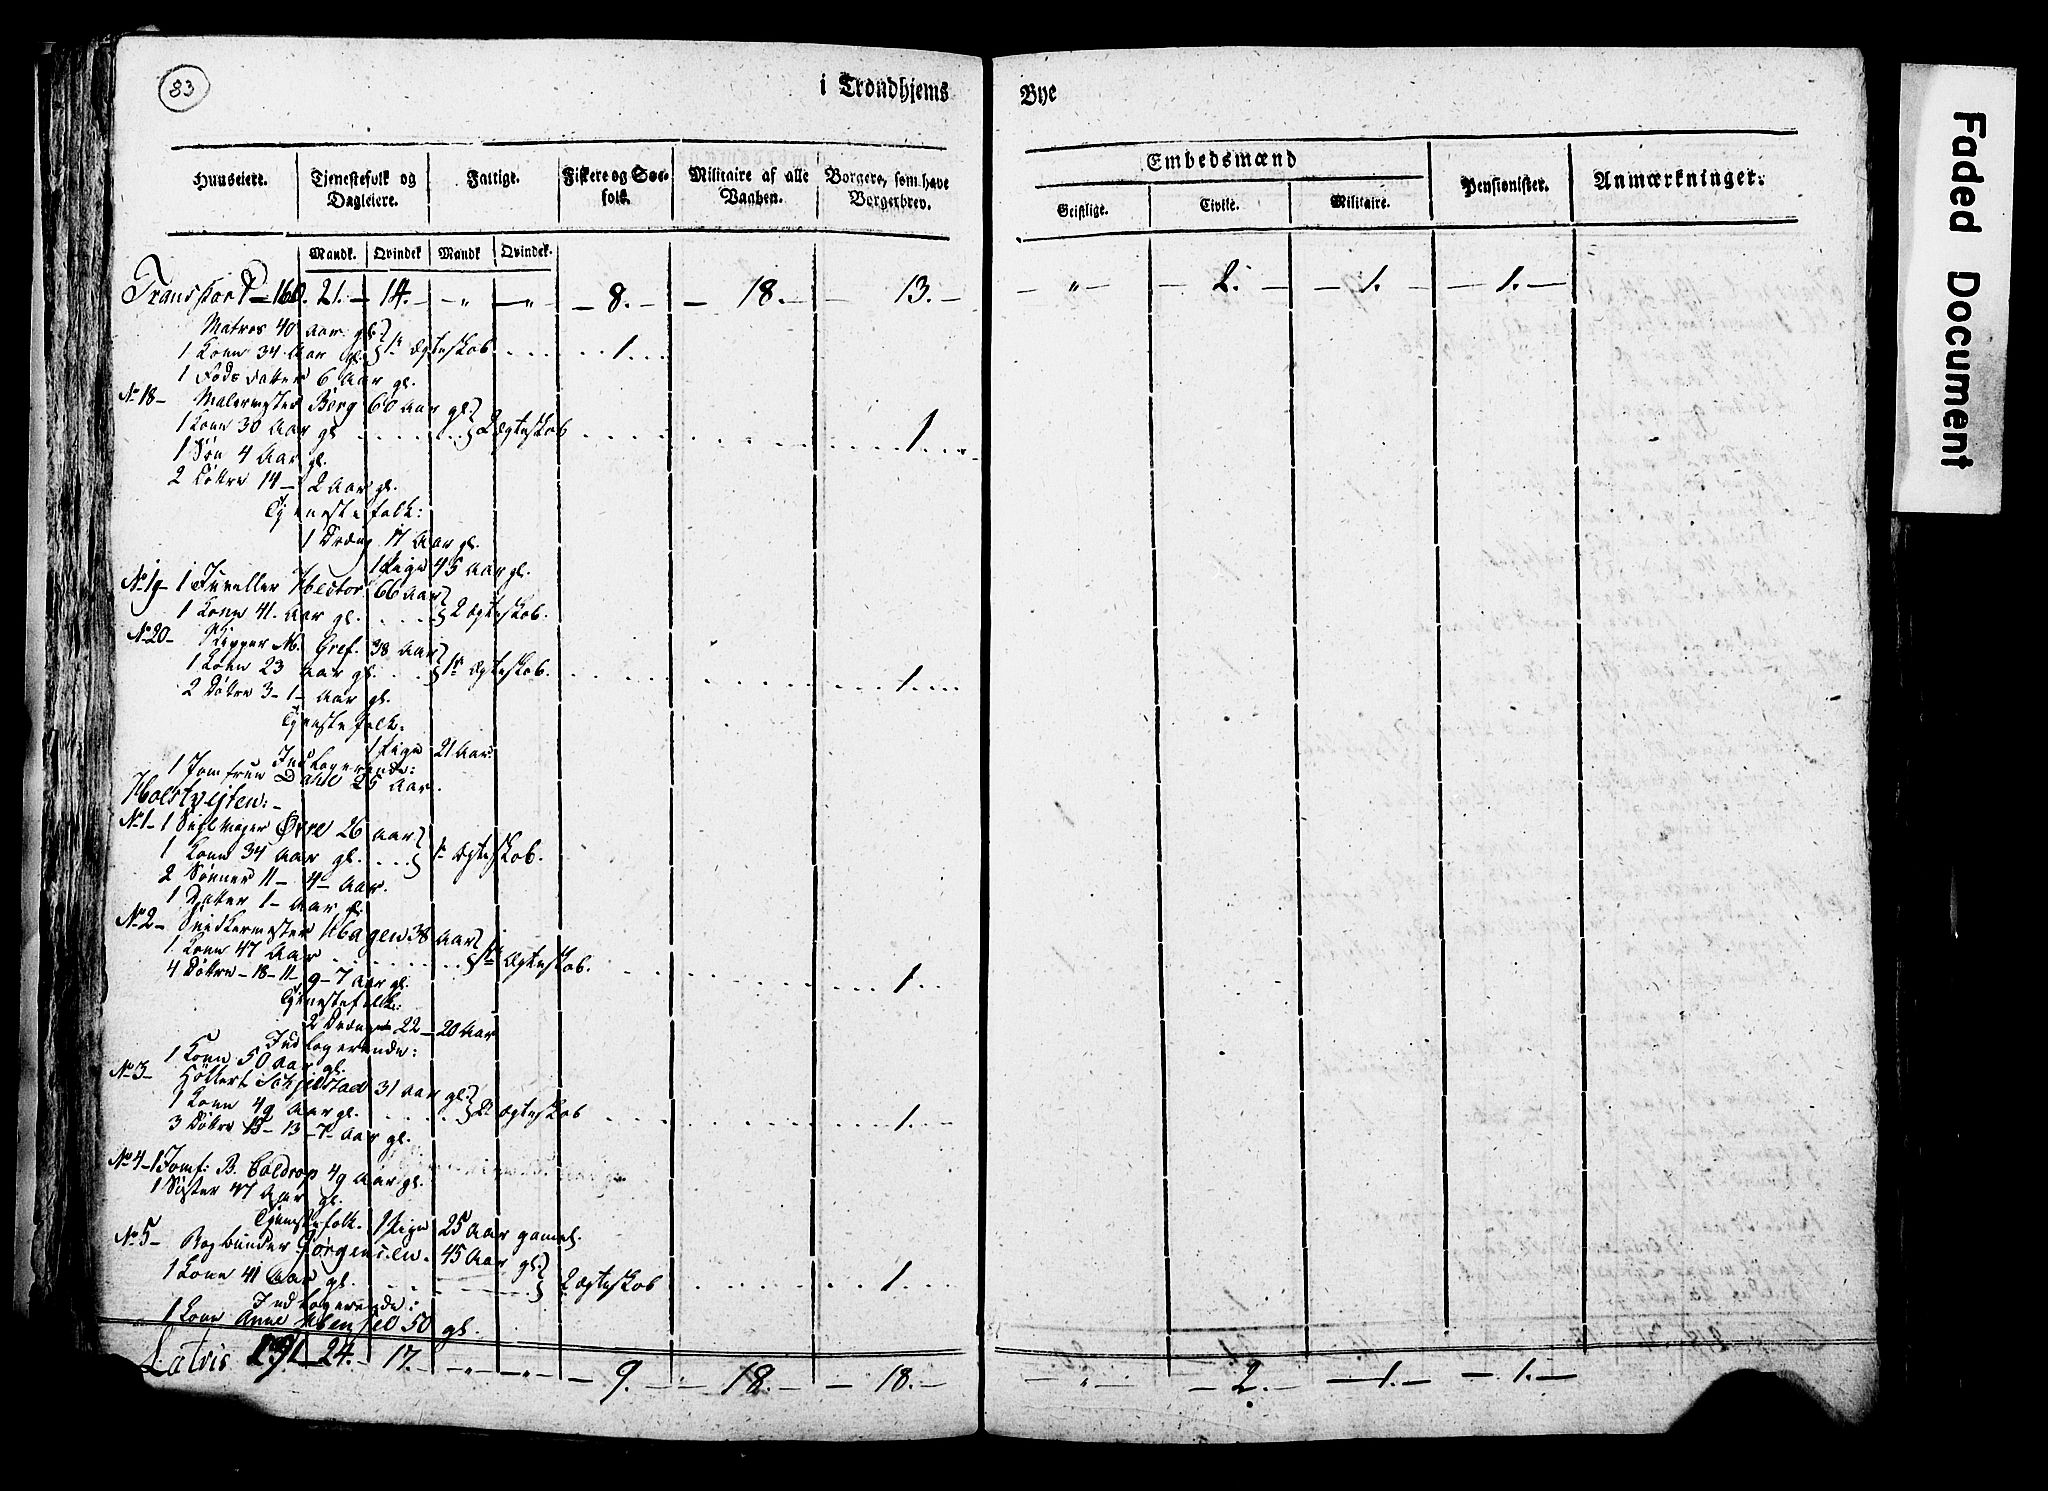 83
i Trondhjems Bye
Huuseiere. Tjenestefolk og Dagleiere. Fattige. Fiskere og Søefolk. Militaire af alle Vaaben. Borgere, som have Borgerbrev. Embedsmænd Pensionister. Anmærkninger.
Geistlige. Civile. Militaire.
Mandk. Qvindek Mandk Qvindek.
Transport - 160. 21. - 14. - „ - „ - 8. - - 18. - - 13. - - „ - - 2. - - 1. - - 1. -
Matros 40 Aar gl.
1 Kone 34 Aar gl. 1te Ægteskab . . . . . . 1. . .
1 Føds Datter 6 Aar gl.
No 18 - Malermester Berg 60 Aar gl.
1 Kone 30 Aar gl . . . . . . 2 Ægteskab . . . . . . 1. . .
1 Søn 4 Aar gl.
2 Døttre 14 - 2 Aar gl.
Tjenestefolk:
1 Dreng 17 Aar gl.
1 Pige 45 Aar gl.
No 19 - 1 Juveller Hector 66 Aar
1 Kone 41. Aar gl. . . . . 2 Ægteskab.
No 20 - Skipper M. Gref. 38 Aar
1 Kone 23 Aar gl. . . . 1te Ægteskab. . . . . . . 1. . . .
2 Døttre 3 - 1 - Aar gl.
Tjenestefolk.
1 Pige 21 Aar
Indlogerende:
1 Jomfrue Dahl 25 Aar.
Holstvejten: -
No 1 - 1 Seglmager Øvre 26 Aar
1 Kone 34 Aar gl. . . . . 1te Ægteskab.
2 Sønner 11 - 4 - Aar.
1 Datter 1 - Aar gl.
No 2 - Snidkermester Hagen 38 Aar
1 Kone 47 Aar . . . . . . 1te Ægteskab. . . . . . . 1. . .
4 Døttre - 18 - 11 - 9 - 7 Aar gl.
Tjenestefolk:
2 Drenge 22 - 20 Aar
Indlogerende:
1 Kone 50 Aar gl.
No 3 - Schjelstad 31 Aar gl.
1 Kone 49 Aar gl. . . . . 2 Ægteskab . . . . . . 1. . .
3 Døttre 15 - 13 - 7 - Aar gl.
No 4 - 1 Jomf: B. Coldrop 49 Aar gl.
1 Søster 47 Aar gl.
Tjenestefolk. 1 Pige 25 Aar gamel.
No 5 - Bogbinder Jörgensen. 45 Aar gl.
1 Kone 41 Aar gl. . . . . . 2 Ægteskab . . . . . . 1. . . .
Indlogerende:
1 Kone Anne 50 gl.
Latus 191 24. - 17. - „ - „ - 9. - - 18. - - 18. - - „ - - 2. - - 1. - - 1. -
Faded Document